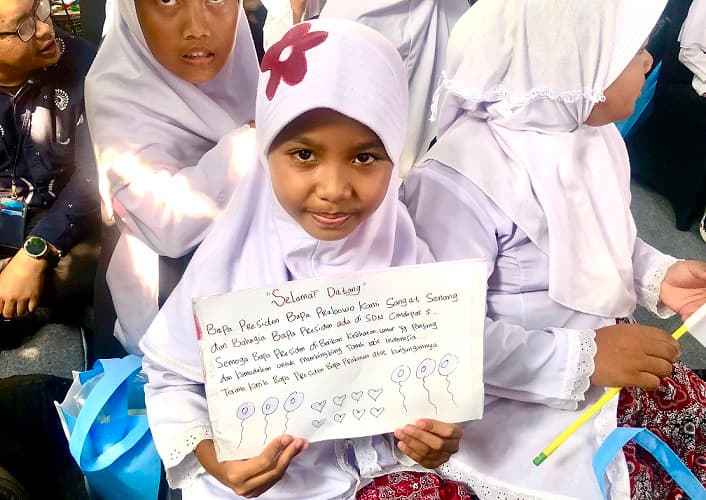 "Selamat Datang"
Bapa Presiden Bapa Prabowo Kami Sangat Senang
dan Bahagia Bapa Presiden ada di SDN Cimahpar 5 -
Semoga Bapa Presiden di Berikan Kesihatan umur Yg Panjang
dan Kemudahan untuk membingbing Tanah air Indonesia
Terima Kasih Bapa Presiden Bapa Prabowo atas kunjungannya